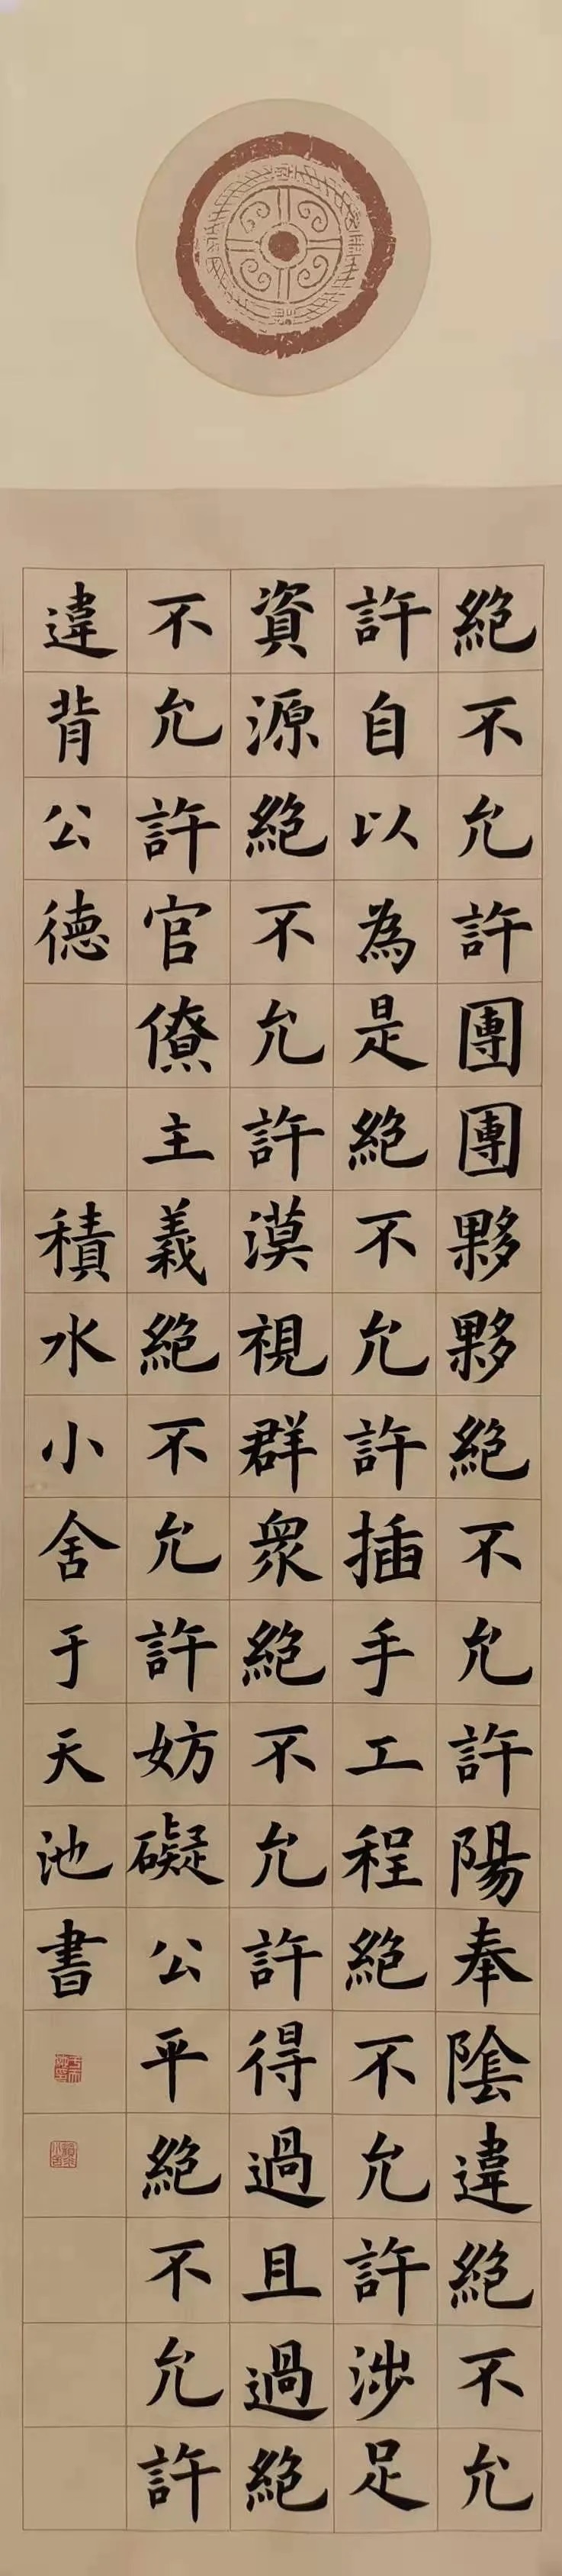 絕不允許團團夥夥絕不允許陽奉陰違絕不允
許自以為是絕不允許插手工程絕不允許涉足
資源絕不允許漠視群衆絕不允許得過且過絕
不允許官僚主義絕不允許妨礙公平絕不允許
違背公德
積水小舍于天池書